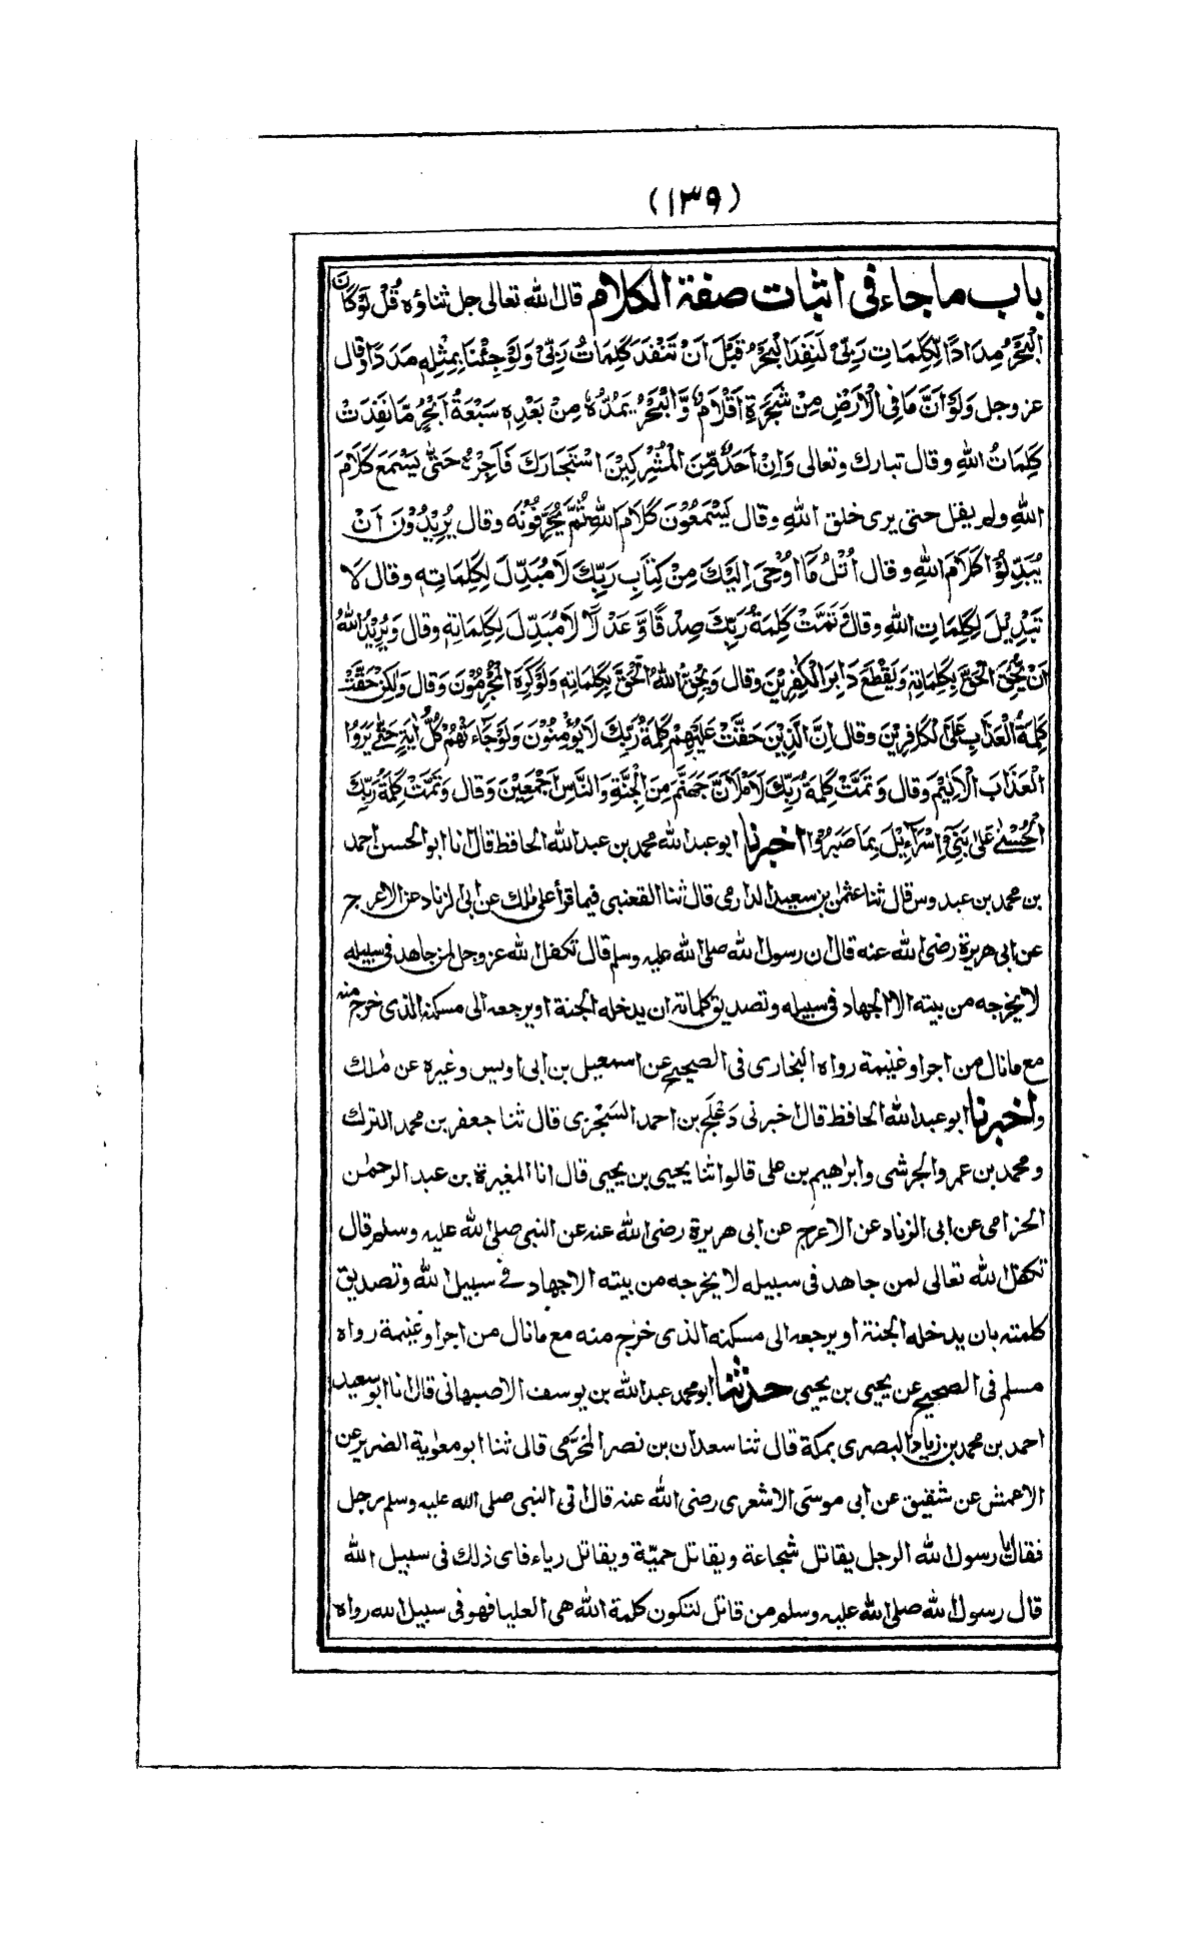 (١٣٩)
باب ماجاء فى اثبات صفة الكلام قال الله تعالى جل ثناؤه قُلْ لَوْ كَانَ
الْبَحْرُ مِدَادًا لِكَلِمَاتِ رَبِّىْ لَنَفِدَ الْبَحْرُ قَبْلَ اَنْ تَنْفَدَ كَلِمَاتُ رَبِّىْ وَلَوْ جِئْنَا بِمِثْلِهٖ مَدَدًا وقال
عز وجل وَلَوْ اَنَّ مَا فِى الْاَرْضِ مِنْ شَجَرَةٍ اَقْلَامٌ وَّالْبَحْرُ يَمُدُّهٗ مِنْ بَعْدِهٖ سَبْعَةُ اَبْحُرٍ مَّا نَفِدَتْ
كَلِمَاتُ اللهِ وقال تبارك وتعالى وَاِنْ اَحَدٌ مِّنَ الْمُشْرِكِيْنَ اسْتَجَارَكَ فَاَجِرْهُ حَتّٰى يَسْمَعَ كَلَامَ
اللهِ ولم يقل حتى يرى خلق اللهِ وقال يَسْمَعُوْنَ كَلَامَ اللهِ ثُمَّ يُحَرِّفُوْنَهٗ وقال يُرِيْدُوْنَ اَنْ
يُبَدِّلُوْا كَلَامَ اللهِ وقال اُتْلُ مَا اُوْحِىَ اِلَيْكَ مِنْ كِتَابِ رَبِّكَ لَا مُبَدِّلَ لِكَلِمَاتِهٖ وقال لَا
تَبْدِيْلَ لِكَلِمَاتِ اللهِ وقال وَتَمَّتْ كَلِمَةُ رَبِّكَ صِدْقًا وَّعَدْلًا لَا مُبَدِّلَ لِكَلِمَاتِهٖ وقال وَيُرِيْدُ اللهُ
اَنْ يُّحِقَّ الْحَقَّ بِكَلِمَاتِهٖ وَيَقْطَعَ دَابِرَ الْكٰفِرِيْنَ وقال وَيُحِقُّ اللهُ الْحَقَّ بِكَلِمَاتِهٖ وَلَوْ كَرِهَ الْمُجْرِمُوْنَ وقال وَلٰكِنْ حَقَّتْ
كَلِمَةُ الْعَذَابِ عَلَى الْكَافِرِيْنَ وقال اِنَّ الَّذِيْنَ حَقَّتْ عَلَيْهِمْ كَلِمَةُ رَبِّكَ لَا يُؤْمِنُوْنَ وَلَوْ جَاءَتْهُمْ كُلُّ اٰيَةٍ حَتّٰى يَرَوُا
الْعَذَابَ الْاَلِيْمَ وقال وَتَمَّتْ كَلِمَةُ رَبِّكَ لَاَمْلَاَنَّ جَهَنَّمَ مِنَ الْجِنَّةِ وَالنَّاسِ اَجْمَعِيْنَ وقال وَتَمَّتْ كَلِمَةُ رَبِّكَ
الْحُسْنٰى عَلٰى بَنِىْ اِسْرَاءِيْلَ بِمَا صَبَرُوْا اخبرنا ابو عبد الله محمد بن عبد الله الحافظ قال انا ابو الحسن احمد
بن محمد بن عبدوس قال ثنا عثمٰن بن سعيد الدارمى قال ثنا القعنبى فيما قرأ على مٰلك عن ابى الزناد عن الاعرج
عن ابى هريرة رضى الله عنه قال ان رسول الله صلى الله عليه وسلم قال تكفل الله عز وجل لمن جاهد فى سبيله
لا يخرجه من بيته الا الجهاد فى سبيله وتصديق كلماته ان يدخله الجنة او يرجعه الى مسكنه الذى خرج منه
مع ما نال من اجر او غنيمة رواه البخارى فى الصحيح عن اسمعيل بن ابى اويس وغيره عن مٰلك
واخبرنا ابو عبد الله الحافظ قال اخبرنى دَعْلَج بن احمد السَجْزى قال ثنا جعفر بن محمد الترك
ومحمد بن عمرو الجرشى وابراهيم بن على قالوا ثنا يحيى بن يحيى قال انا المغيرة بن عبد الرحمٰن
الحزامى عن ابى الزناد عن الاعرج عن ابى هريرة رضى الله عنه عن النبى صلى الله عليه وسلم قال
تكفل الله تعالى لمن جاهد فى سبيله لا يخرجه من بيته الا جهاد فى سبيل الله وتصديق
كلمته بان يدخله الجنة او يرجعه الى مسكنه الذى خرج منه مع ما نال من اجر او غنيمة رواه
مسلم فى الصحيح عن يحيى بن يحيى حدثنا ابو محمد عبد الله بن يوسف الاصبهانى قال انا ابو سعيد
احمد بن محمد بن زياد البصرى بمكة قال ثنا سعدان بن نصر المُخَرِّمى قال ثنا ابو معٰوية الضرير عن
الاعمش عن شقيق عن ابى موسَى الاشعرى رضى الله عنه قال اتى النبى صلى الله عليه وسلم رجل
فقال يا رسول الله الرجل يقاتل شجاعة ويقاتل حميّة ويقاتل رياء فاى ذلك فى سبيل الله
قال رسول الله صلى الله عليه وسلم من قاتل لتكون كلمة الله هى العليا فهو فى سبيل الله رواه